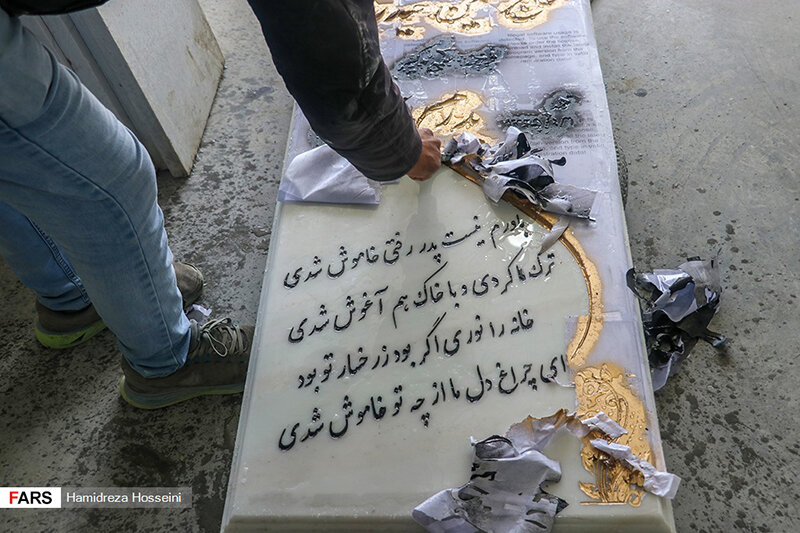 باورم نیست پدر رفتی خاموش شدی
ترک ما کردی و با خاک هم آغوش شدی
خانه را نوری اگر بود ز رخسار تو بود
ای چراغ دل ما از چه تو خاموش شدی
FARS
Hamidreza Hosseini